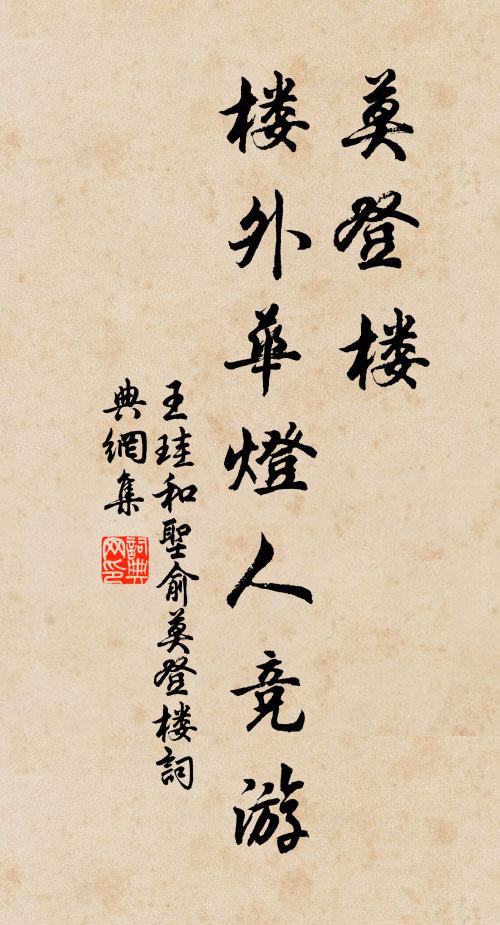 莫登楼
楼外华燈人竞游
王珪和聖俞莫登楼詞
典網集
詞典网印